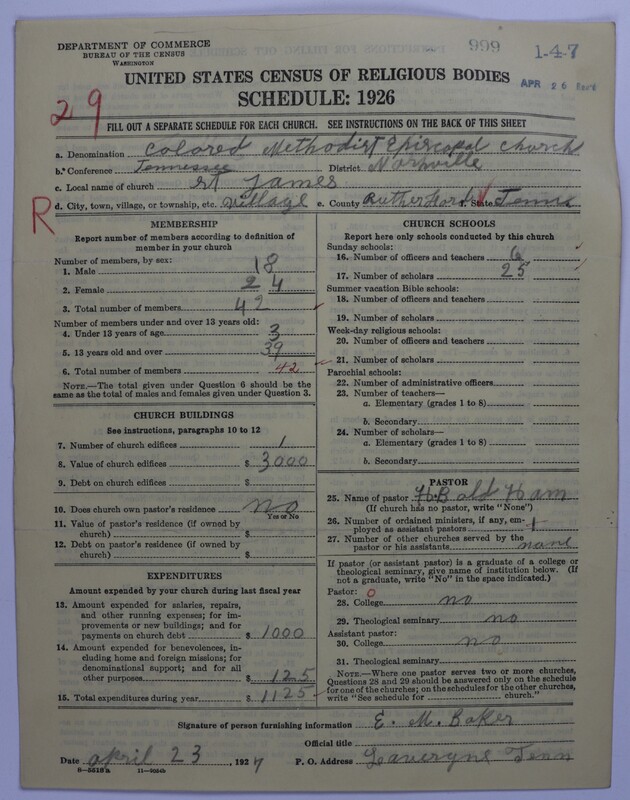 DEPARTMENT OF COMMERCE
BUREAU OF THE CENSUS
WASHINGTON
999
1-4-7
UNITED STATES CENSUS OF RELIGIOUS BODIES
APR 26
SCHEDULE: 1926
29
FILL OUT A SEPARATE SCHEDULE FOR EACH CHURCH. SEE INSTRUCTIONS ON THE BACK OF THIS SHEET
a. Denomination Colored Methodist Episcopal Church
b. Conference Tennessee District Nashville
c. Local name of church St James
R
d. City, town, village, or township, etc. Village e. County Rutherford f. State Tenn
MEMBERSHIP
Report number of members according to definition of
member in your church
Number of members, by sex:
1. Male 18
2. Female 24
3. Total number of members 42
Number of members under and over 13 years old:
4. Under 13 years of age 3
5. 13 years old and over 39
6. Total number of members 42
NOTE.—The total given under Question 6 should be
same as the total of males and females given under Question 3.
CHURCH BUILDINGS
See instructions, paragraphs 10 to 12
7. Number of church edifices 1
8. Value of church edifices $ 3000
9. Debt on church edifices $
10. Does church own pastor's residence no
Yes or No
11. Value of pastor's residence (if owned by
church) $
12. Debt on pastor's residence (if owned by
church) $
EXPENDITURES
Amount expended by your church during last fiscal year
13. Amount expended for salaries, repairs,
and other running expenses; for im-
provements or new buildings; and for
payments on church debt $ 1000
14. Amount expended for benevolences, in-
cluding home and foreign missions; for
denominational support; and for all
other purposes $ 125
15. Total expenditures during year $ 1125
CHURCH SCHOOLS
Report here only schools conducted by this church
Sunday schools:
16. Number of officers and teachers 6
17. Number of scholars 25
Summer vacation Bible schools:
18. Number of officers and teachers
19. Number of scholars
Week-day religious schools:
20. Number of officers and teachers
21. Number of scholars
Parochial schools:
22. Number of administrative officers
23. Number of teachers—
a. Elementary (grades 1 to 8)
b. Secondary
24. Number of scholars—
a. Elementary (grades 1 to 8)
b. Secondary
PASTOR
25. Name of pastor H.B old Ham
(If church has no pastor, write "None")
26. Number of ordained ministers, if any, em-
ployed as assistant pastors 1
27. Number of other churches served by the
pastor or his assistants none
If pastor (or assistant pastor) is a graduate of a college or
theological seminary, give name of institution below. (If
not a graduate, write "No" in the space indicated.)
Pastor: 0
28. College no
29. Theological seminary no
Assistant pastor:
30. College no
31. Theological seminary
NOTE.—Where one pastor serves two or more churches,
Questions 28 and 29 should be answered only on the schedule
for one of the churches; on the schedules for the other churches,
write "See schedule for church."
Signature of person furnishing information E. M. Baker
Official title
Date april 23, 1927 P. O. Address Lavergne Tenn